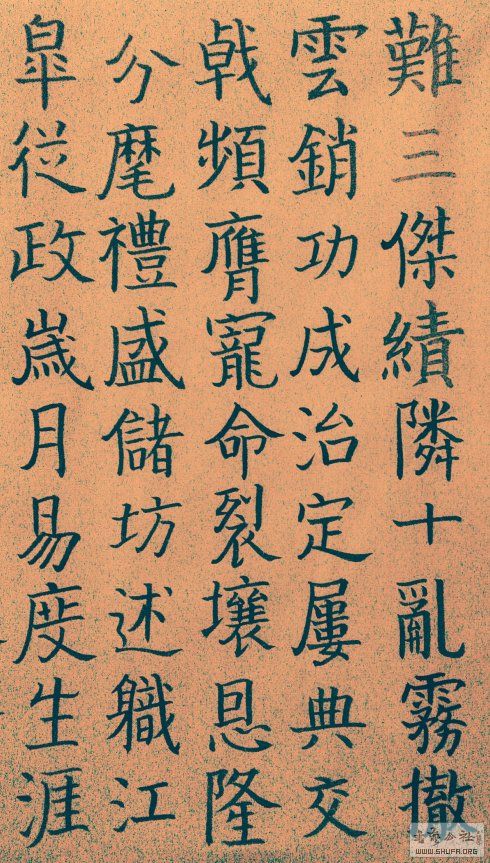 難三傑績隣十亂霧撤
雲銷功成治定屢典交
戟頻膺寵命裂壤恩隆
分麾禮盛儲坊述職江
皐從政歲月易度生涯
WWW.SHUFA.ORG